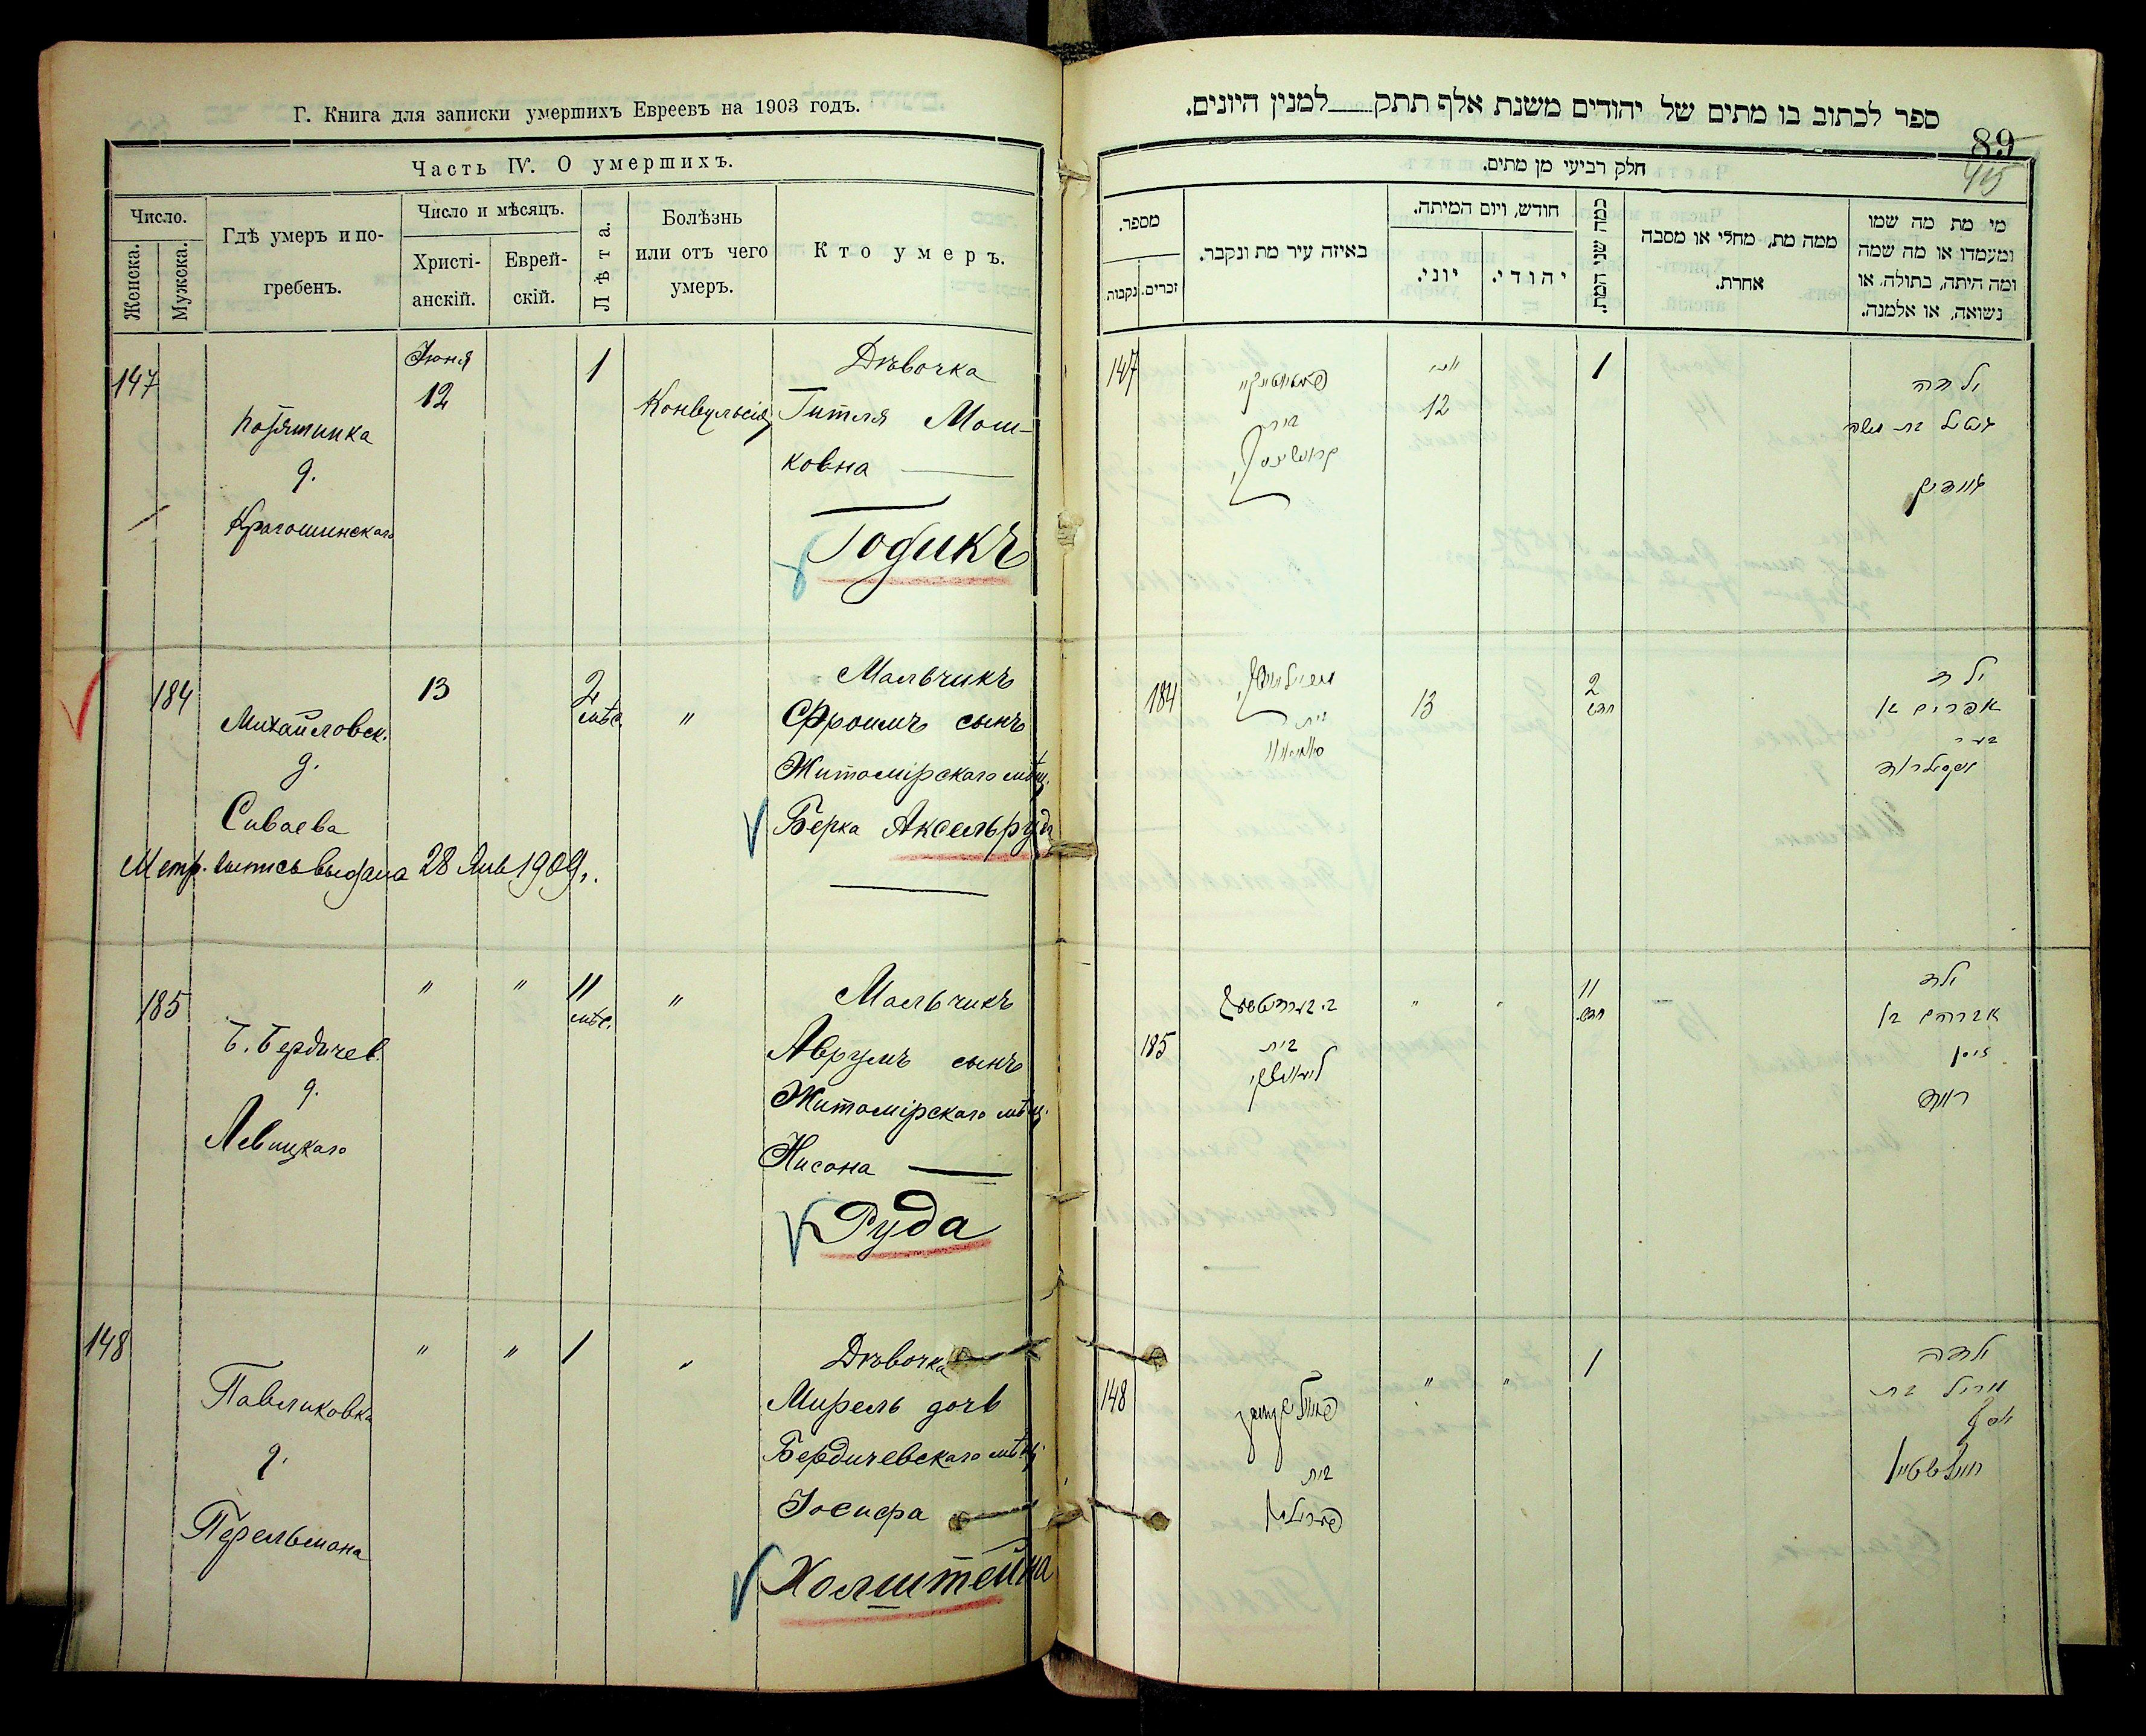 Г. Книга для записки умершихъ Евреевъ на 1903 годъ.
Часть IV. О умершихъ.
Число.
Женска.
Мужска.
Гдѣ умеръ и по-
гребенъ.
Число и мѣсяцъ.
Христі-
анскій.
Еврей-
скій.
Лѣта.
Болѣзнь
или отъ чего
умеръ.
Кто умеръ.
147
Июня
12
1
Конвульсія
Дѣвочка
Гитля Мош-
ковна
Годикъ
д.
Крагошинскаго
184
Михайловск.
д.
Сиваева
13
2
мѣс.
"
Мальчикъ
Фроимъ сынъ
Житомірскаго мѣщ.
Берка Аксельруда
Метр. выпись выдана 28 Янв 1909 г.
185
Б. Бердичев.
д.
Левицкаго
"
"
11
мѣс.
"
Мальчикъ
Аврумъ сынъ
Житомірскаго мѣщ.
Нисона
Руда
148
Павликовка
д.
Перельмана
"
"
1
"
Дѣвочка
Мирель дочь
Бердичевскаго мѣщ.
Іосифа
Холштейна
ספר לכתוב בו מתים של יהודים משנת אלף תתק למנין היונים.
89
חלק רביעי מן מתים.
מספר.
נקבות.
זכרים.
באיזה עיר מת ונקבר.
חודש, ויום המיתה.
יוני.
יהודי.
כמה שני המת.
ממה מת, מחלי או מסבה
אחרת.
מי מת מה שמו
ומעמדו או מה שמה
ומה היתה, בתולה, או
נשואה, או אלמנה.
147
בית
יוני
12
1
ילדה
גיטל בת משה
גודיק
184
בית
13
2
חדש
ילד
אפרים בן
בער
אקסילרוד
185
בית
"
"
11
חדש
ילד
אברהם בן
ניסן
רוד
148
בית
פערילמאן
"
"
1
ילדה
מירל בת
יוסף
חולשטיין